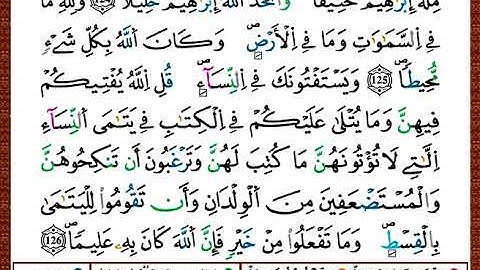 مِلَّةَ إِبْرَٰهِيمَ حَنِيفًا وَاتَّخَذَ اللَّهُ إِبْرَٰهِيمَ خَلِيلًا وَلِلَّهِ مَا
فِي السَّمَٰوَٰتِ وَمَا فِي الْأَرْضِ وَكَانَ اللَّهُ بِكُلِّ شَيْءٍ
مُّحِيطًا 125 وَيَسْتَفْتُونَكَ فِي النِّسَاءِ قُلِ اللَّهُ يُفْتِيكُمْ
فِيهِنَّ وَمَا يُتْلَىٰ عَلَيْكُمْ فِي الْكِتَٰبِ فِي يَتَٰمَى النِّسَاءِ
الَّٰتِي لَا تُؤْتُونَهُنَّ مَا كُتِبَ لَهُنَّ وَتَرْغَبُونَ أَن تَنكِحُوهُنَّ
وَالْمُسْتَضْعَفِينَ مِنَ الْوِلْدَٰنِ وَأَن تَقُومُوا لِلْيَتَٰمَىٰ
بِالْقِسْطِ وَمَا تَفْعَلُوا مِنْ خَيْرٍ فَإِنَّ اللَّهَ كَانَ بِهِ عَلِيمًا 126